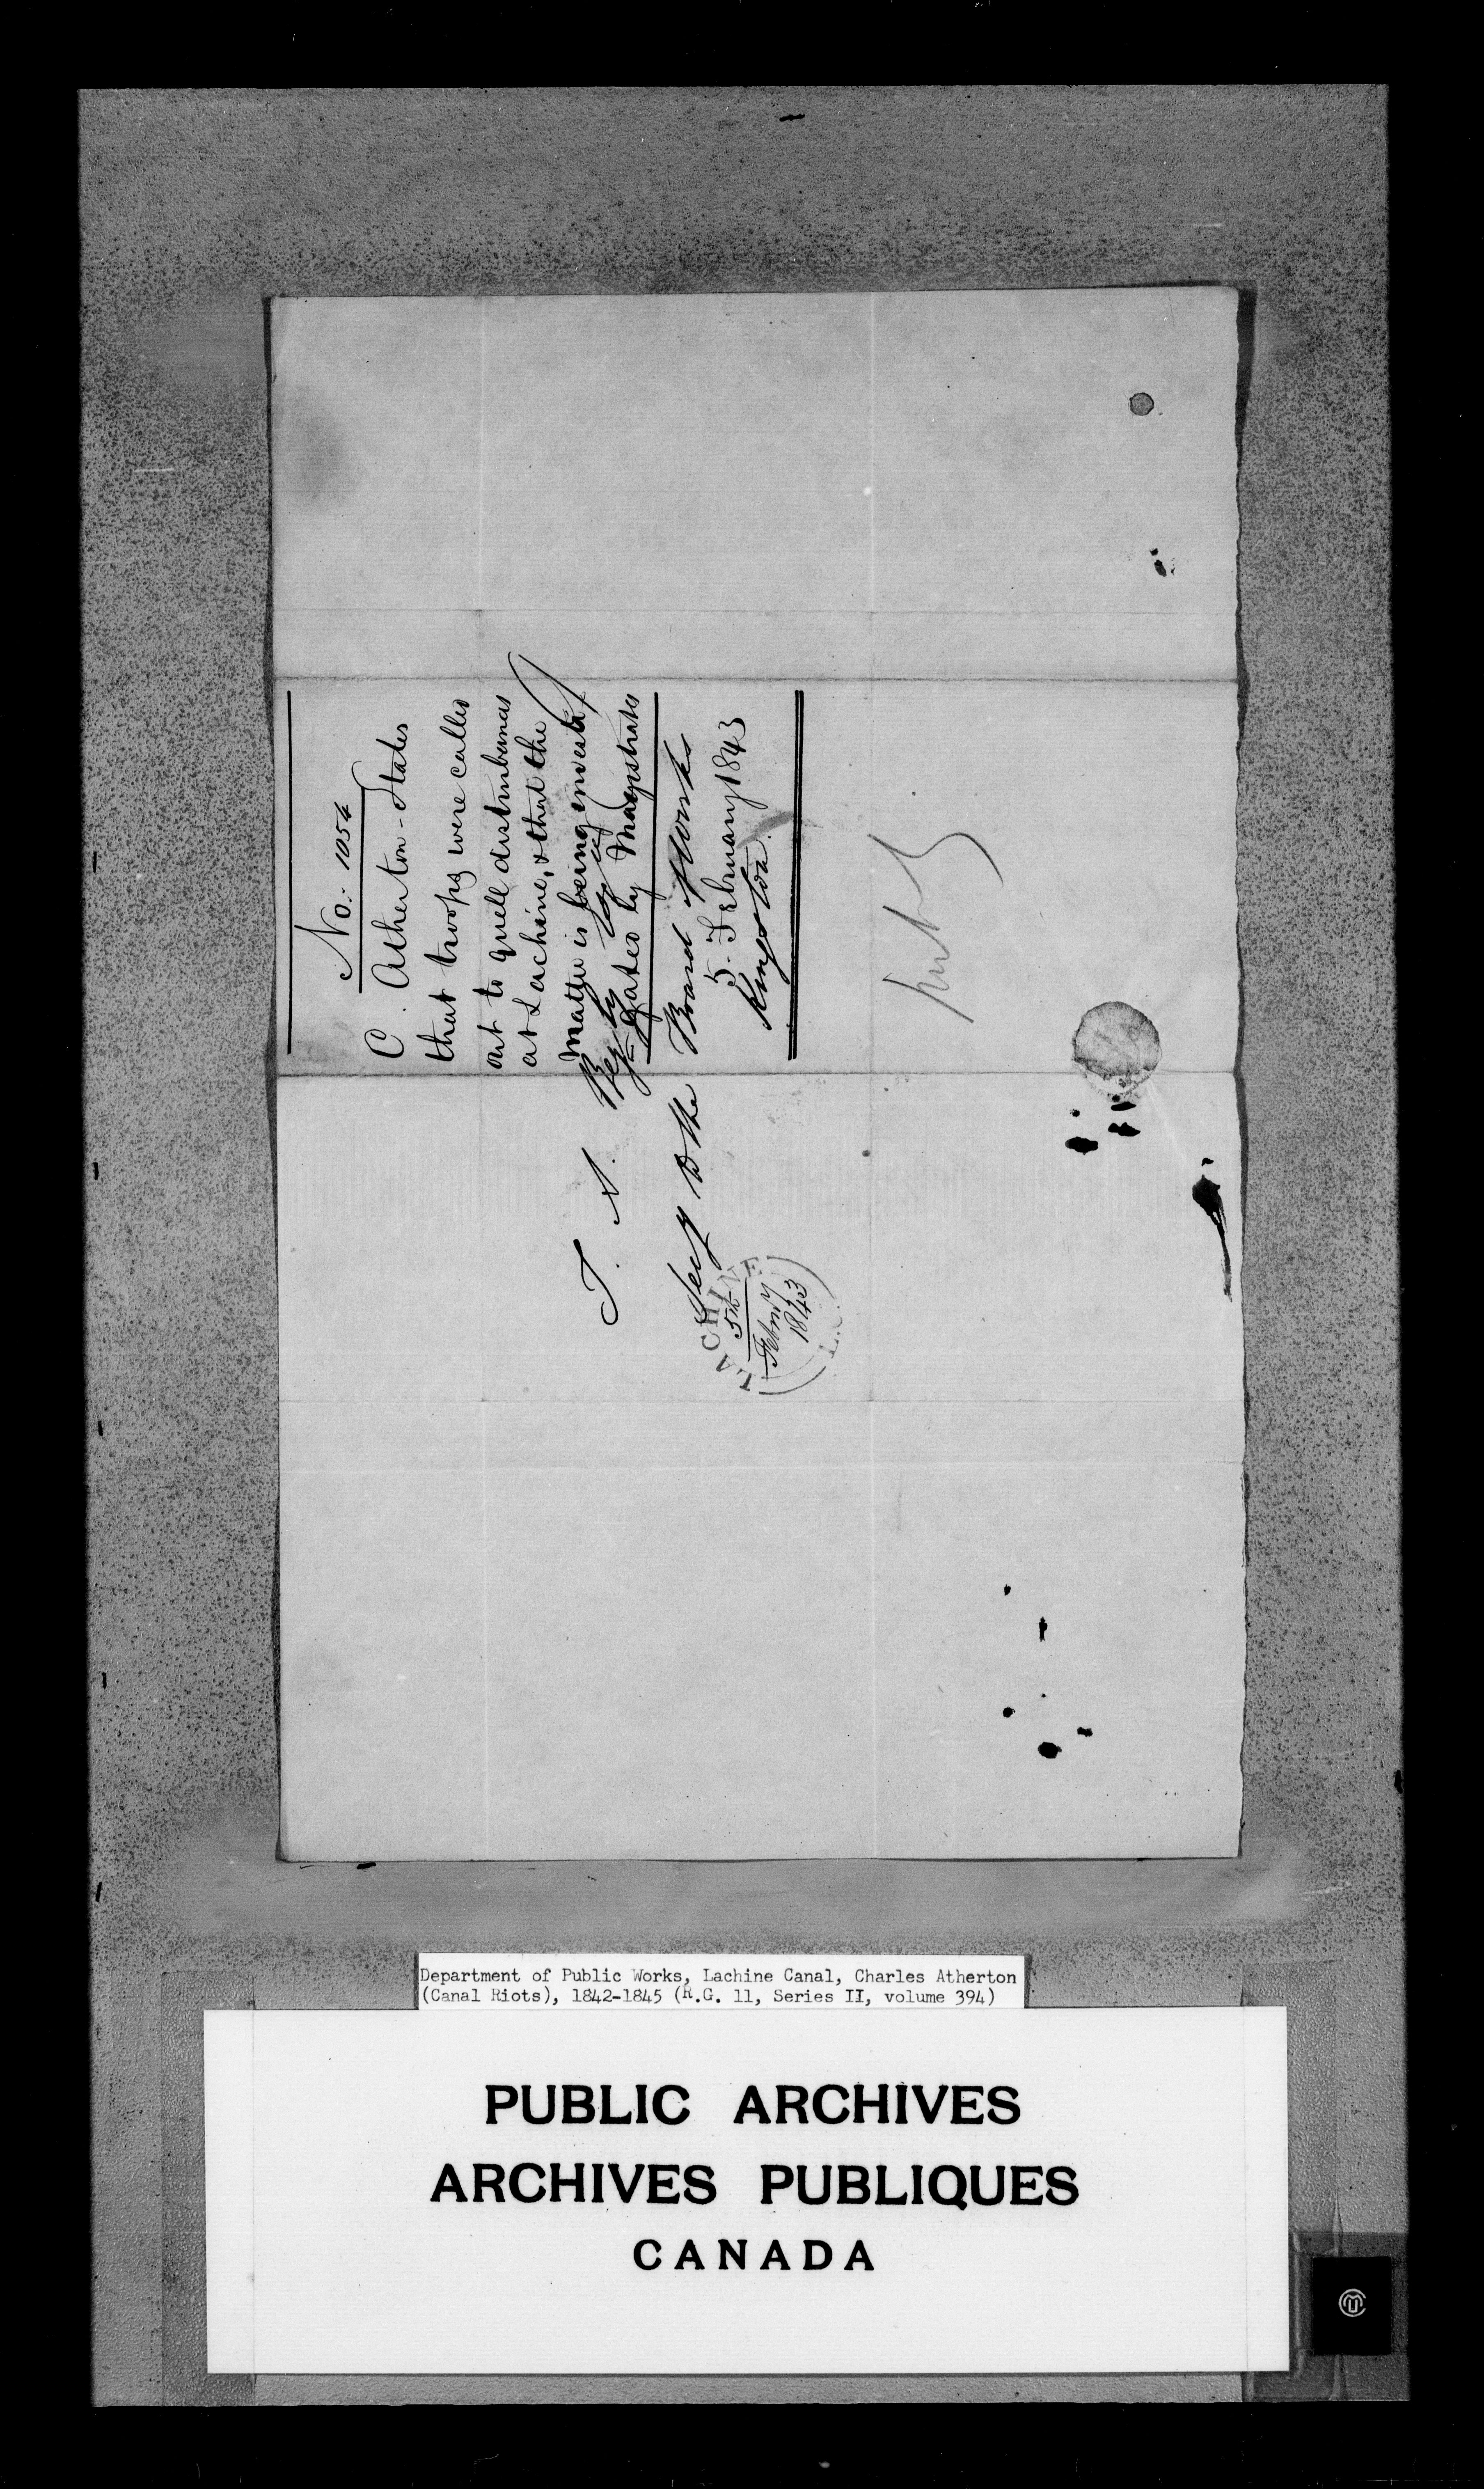 No. 1054
C. Atherton - States
that troops were called
out to quell disturbances
at Lachine, & that the
matter is being investi-
=gated by Magistrates
5. February 1843
T. A. Begly Esq
Secy to the Board of Works
Kingston
LACHINE
5th
Febry
1843
Department of Public Works, Lachine Canal, Charles Atherton
(Canal Riots), 1842-1845 (R.G. 11, Series II, volume 394)
PUBLIC ARCHIVES
ARCHIVES PUBLIQUES
CANADA